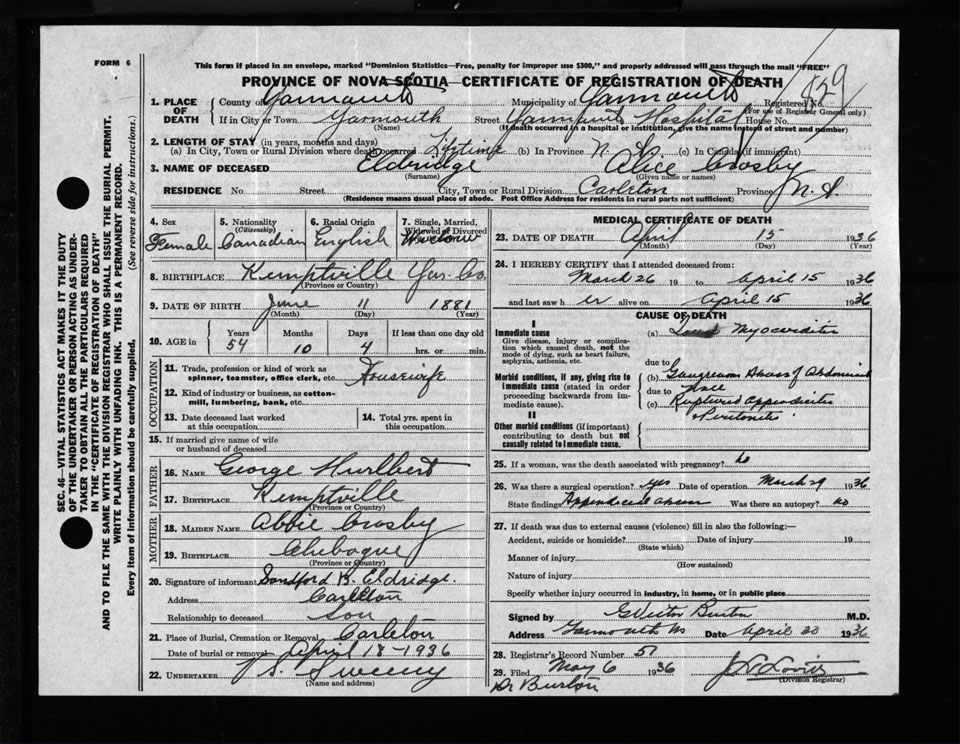 FORM 6
This form if placed in an envelope, marked "Dominion Statistics—Free, penalty for improper use $300," and properly addressed will pass through the mail "FREE"
PROVINCE OF NOVA SCOTIA—CERTIFICATE OF REGISTRATION OF DEATH
829
1. PLACE OF DEATH County of Yarmouth Municipality of Yarmouth Registered No.
(For use of Registrar General only)
If in City or Town Yarmouth Street Yarmouth Hospital House No.
(Name) (If death occurred in a hospital or institution, give the name instead of street and number)
2. LENGTH OF STAY (in years, months and days)
(a) In City, Town or Rural Division where death occurred Lifetime (b) In Province N. S. (c) In Canada (if immigrant)
3. NAME OF DECEASED Eldridge Alice Crosby
(Surname) (Given name or names)
RESIDENCE No. Street City, Town or Rural Division Carleton Province N. S.
(Residence means usual place of abode. Post Office Address for residents in rural parts not sufficient)
4. Sex Female
5. Nationality (Citizenship) Canadian
6. Racial Origin English
7. Single, Married, Widowed or Divorced Widow
8. BIRTHPLACE Kemptville Yar. Co.
(Province or Country)
9. DATE OF BIRTH June 11 1881
(Month) (Day) (Year)
10. AGE in Years 54 Months 10 Days 4 If less than one day old hrs. or min.
OCCUPATION
11. Trade, profession or kind of work as spinner, teamster, office clerk, etc. Housewife
12. Kind of industry or business, as cotton-mill, lumbering, bank, etc.
13. Date deceased last worked at this occupation
14. Total yrs. spent in this occupation
15. If married give name of wife or husband of deceased
FATHER
16. NAME George Hurlbert
17. BIRTHPLACE Kemptville
(Province or Country)
MOTHER
18. MAIDEN NAME Abbie Crosby
19. BIRTHPLACE Chebogue
(Province or Country)
20. Signature of informant Sandford B. Eldridge.
Address Carleton
Relationship to deceased son
21. Place of Burial, Cremation or Removal Carleton
Date of burial or removal April 18-1936
22. UNDERTAKER V. S. Sweeny
(Name and address)
MEDICAL CERTIFICATE OF DEATH
23. DATE OF DEATH April 15 1936
(Month) (Day) (Year)
24. I HEREBY CERTIFY that I attended deceased from:
March 26 19 to April 15 1936
and last saw her alive on April 15 1936
CAUSE OF DEATH
I
Immediate cause
Give disease, injury or complication which caused death, not the mode of dying, such as heart failure, asphyxia, asthenia, etc.
(a) Myocarditis
due to
Morbid conditions, if any, giving rise to immediate cause (stated in order proceeding backwards from immediate cause).
(b) Gangrenous Abscess of Abdominal
due to wall
(c) Ruptured Appendicitis
Peritonitis
II
Other morbid conditions (if important) contributing to death but not causally related to immediate cause.
25. If a woman, was the death associated with pregnancy? no
26. Was there a surgical operation? yes Date of operation March 29 1936
State findings Appendiceal abscess Was there an autopsy? no
27. If death was due to external causes (violence) fill in also the following:—
Accident, suicide or homicide? Date of injury 19
(State which)
Manner of injury
(How sustained)
Nature of injury
Specify whether injury occurred in industry, in home, or in public place
Signed by G Victor Burton M.D.
Address Yarmouth NS Date April 30 1936
28. Registrar's Record Number 51
29. Filed May 6 1936
(Division Registrar)
Dr Burton
SEC. 46—VITAL STATISTICS ACT MAKES IT THE DUTY
OF THE UNDERTAKER OR PERSON ACTING AS UNDER-
TAKER TO OBTAIN ALL THE PARTICULARS REQUIRED
IN THE "CERTIFICATE OF REGISTRATION OF DEATH"
AND TO FILE THE SAME WITH THE DIVISION REGISTRAR WHO SHALL ISSUE THE BURIAL PERMIT.
WRITE PLAINLY WITH UNFADING INK. THIS IS A PERMANENT RECORD.
Every item of information should be carefully supplied. (See reverse side for instructions.)